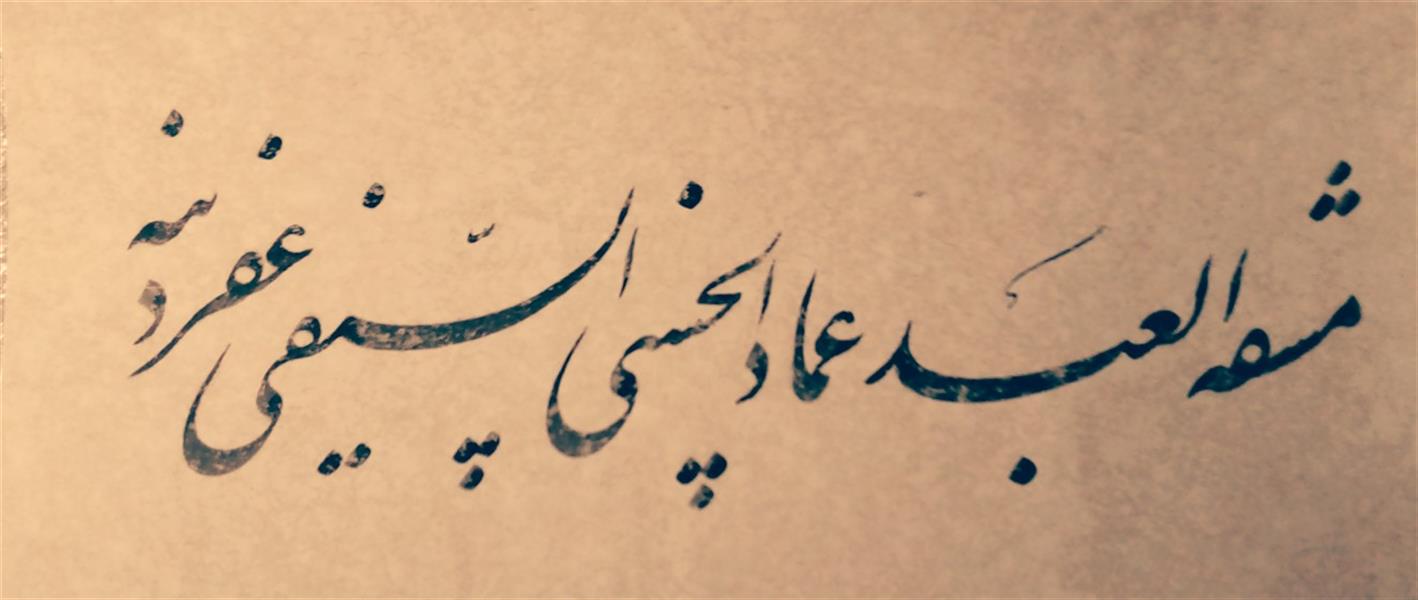 مشقه العبد عماد الحسنی السیفی غفر ذنبه